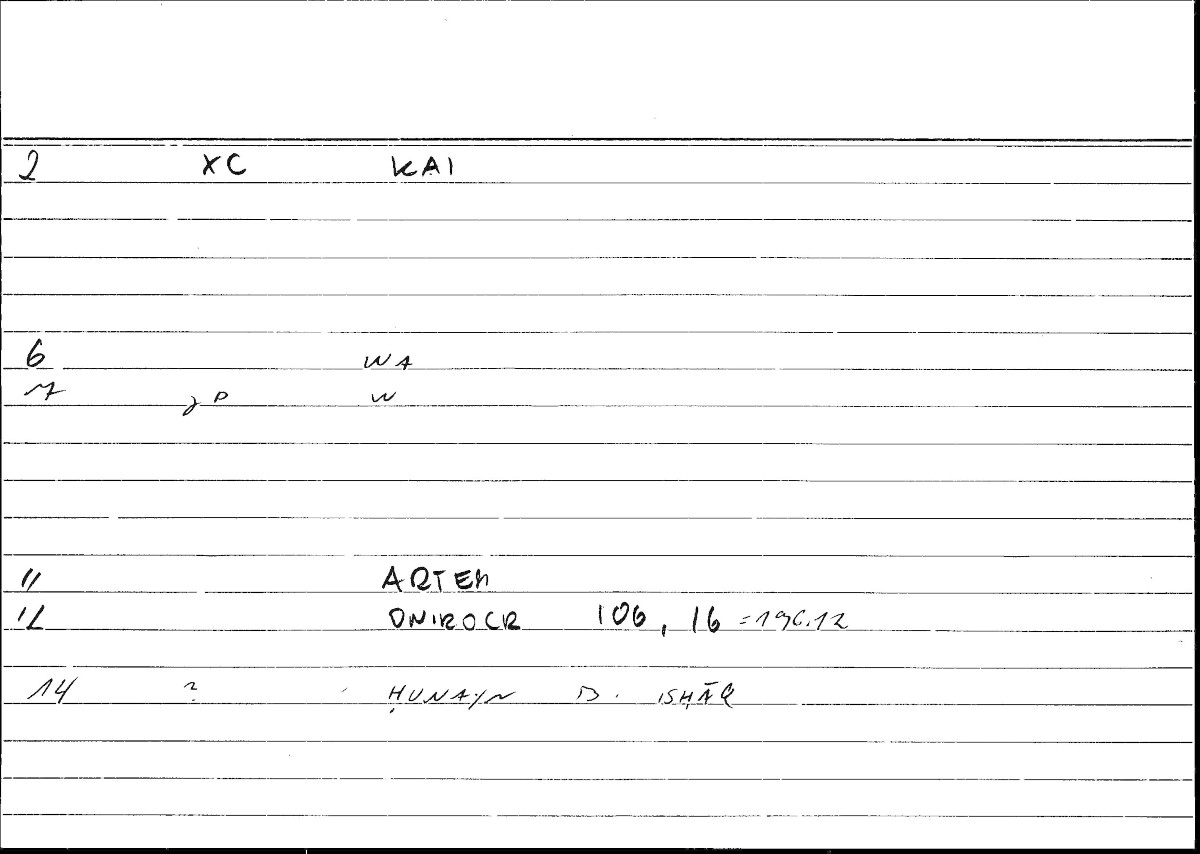 2 XC KAI
6 WA
7 JP W
11 ARTEM
12 ONIROCR 106, 16 =196.12
14 ? ḤUNAYN B. ISḤĀQ